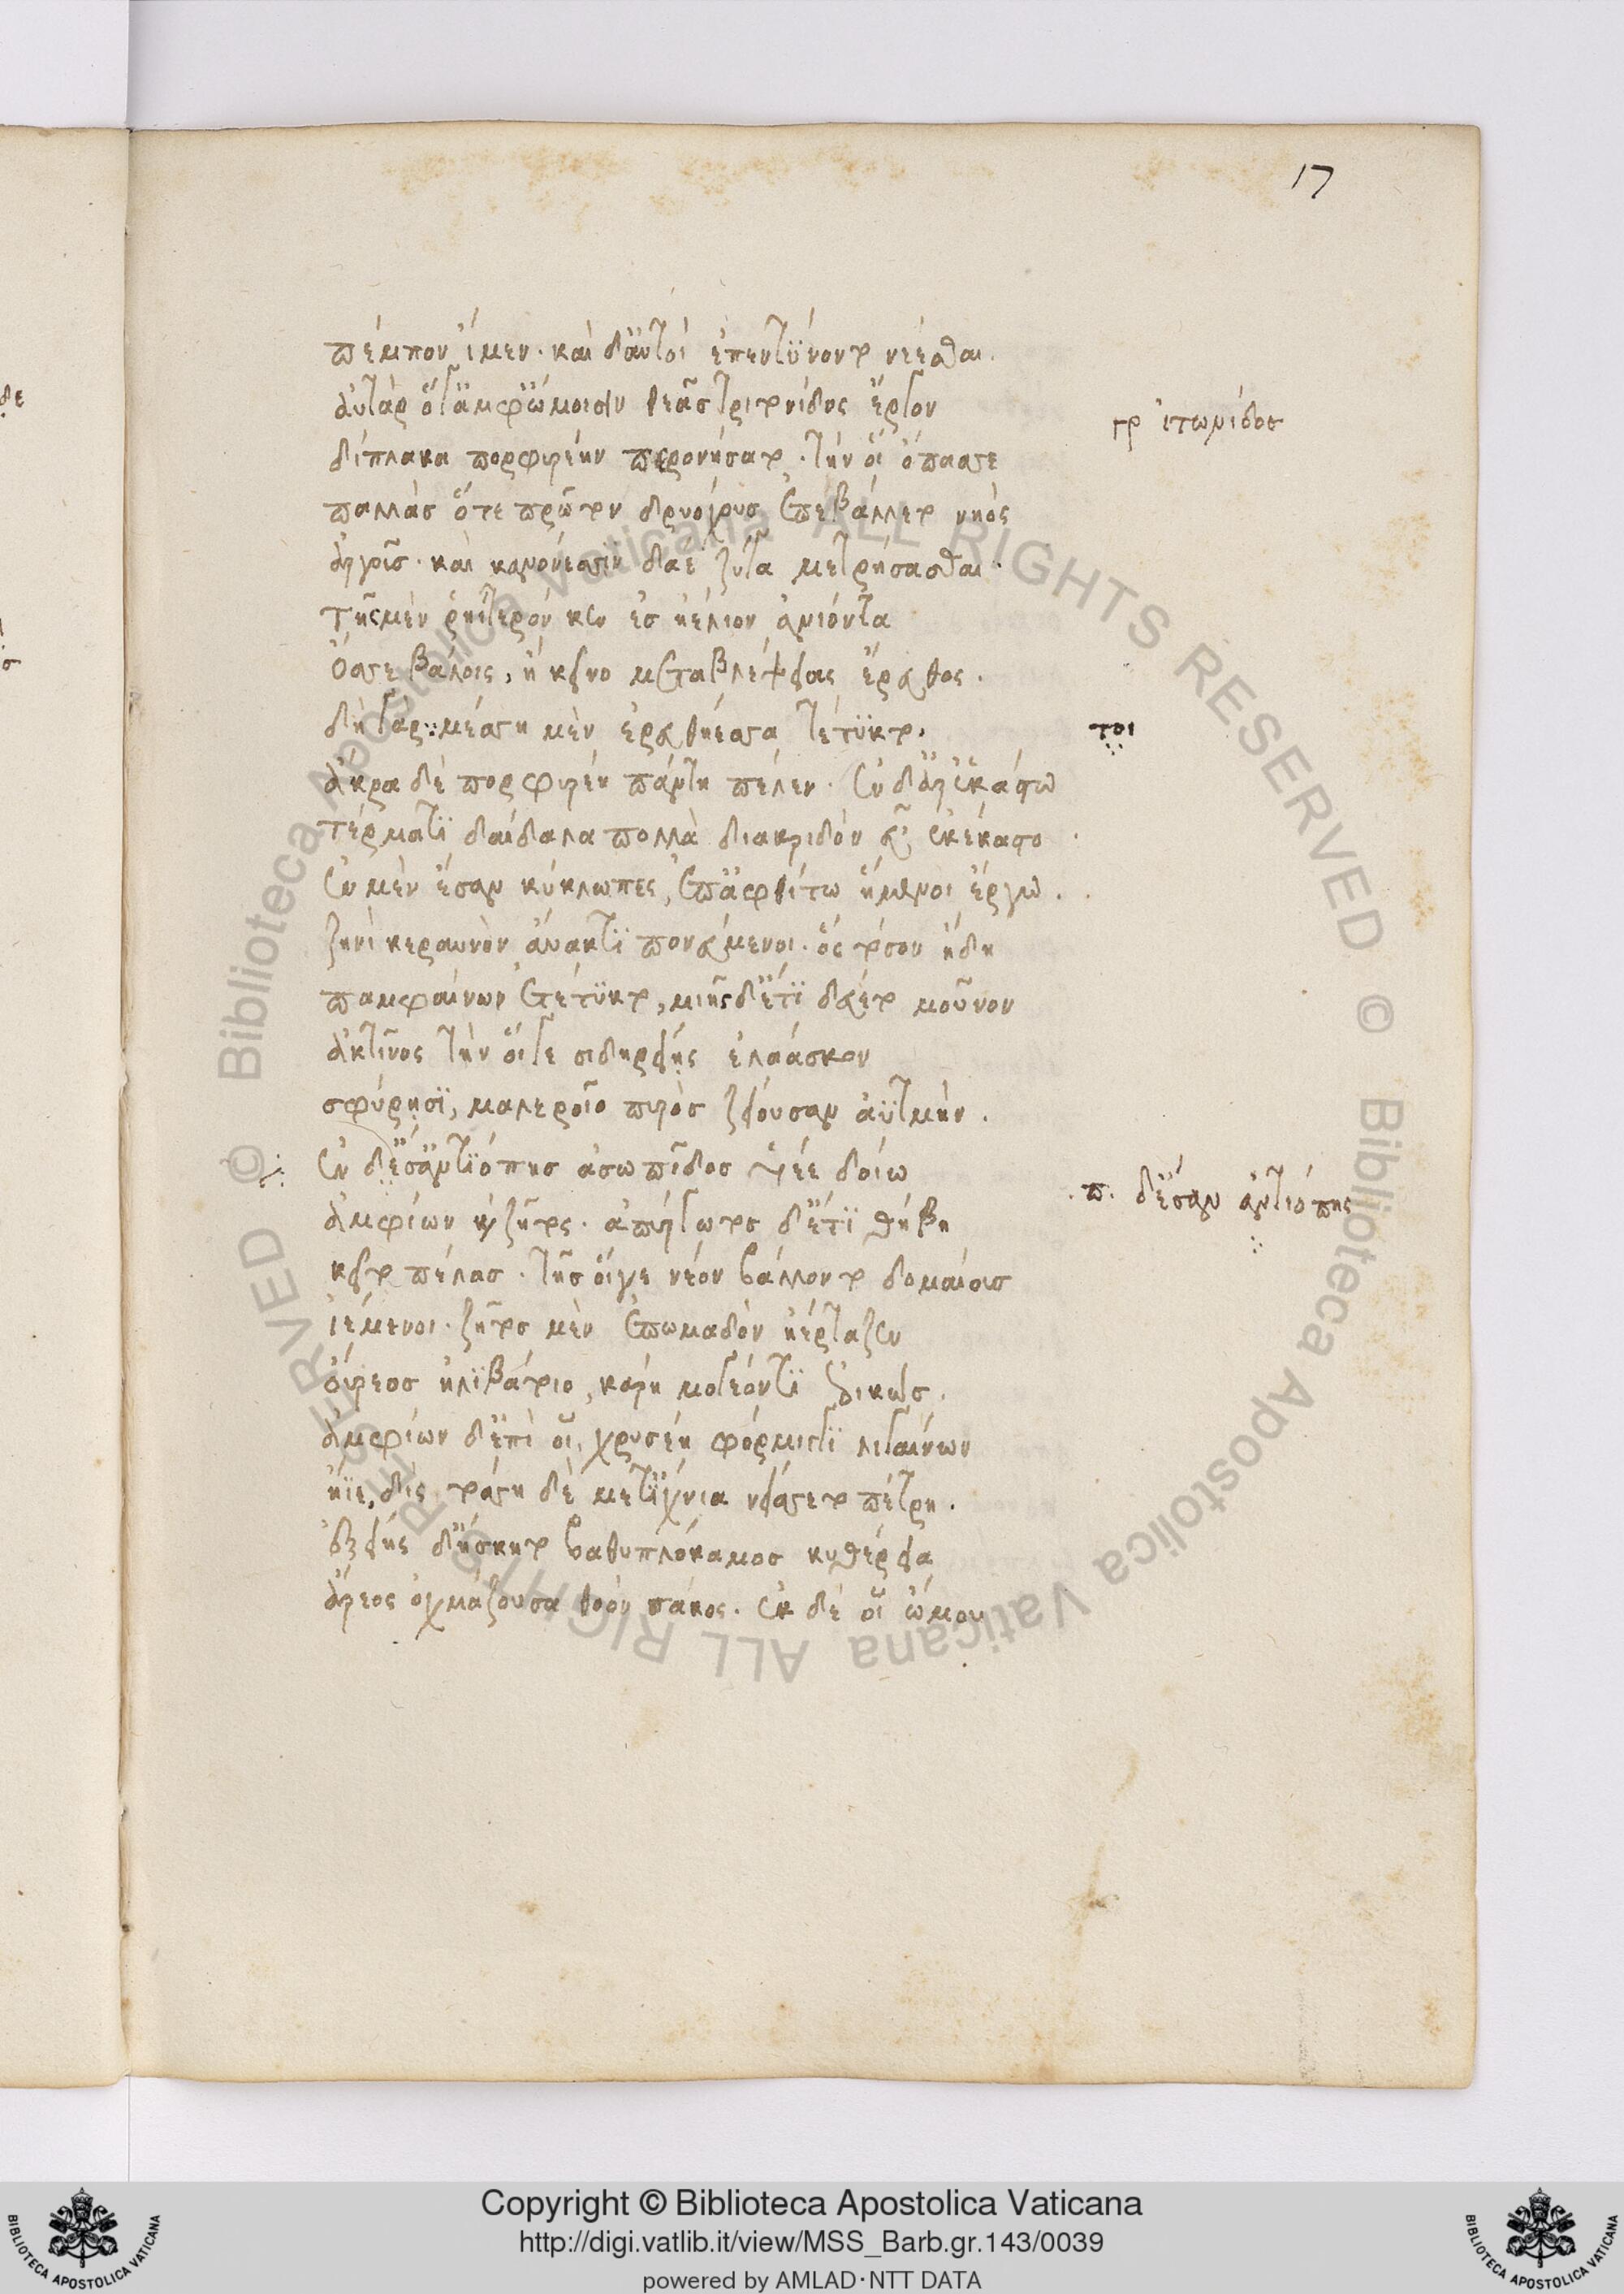 17
πέμπον ἴμεν· καὶ δ' αὐτοὶ ἐπεντύνοντο νέεσθαι.
αὐτὰρ ὅγ' ἀμφ' ὤμοισιν θεᾶς τριτωνίδος ἔργον
γρ ἰτωνίδος
δίπλακα πορφυρέην περονήσατο· τὴν οἱ ὄπασσε
παλλὰς ὅτε πρῶτον δρυόχους ἐπεβάλλετο νηὸς
ἀργοῦς· καὶ κανόνεσσιν δάε ζυγὰ μετρήσασθαι·
τῆς μὲν ῥηΐτερόν κεν ἐς ἠέλιον ἀνιόντα
ὄσσε βάλοις, ἢ κεῖνο μεταβλέψειας ἔρευθος.
δὴ γάρ μέσση μὲν ἐρευθήεσσα τέτυκτο.
τοι
ἄκρα δὲ πορφυρέη πάντη πέλεν· ἐν δ' ἄρ' ἑκάστω
τέρματι δαίδαλα πολλὰ διακριδὸν εὖ ἐκέκαστο
ἐν μὲν ἔσαν κύκλωπες, ἐπ' ἀφθίτω ἥμενοι ἔργω.
ζηνὶ κεραυνὸν ἄνακτι πονεύμενοι· ὃς τόσον ἤδη
παμφαίνων ἐτέτυκτο, μιῆς δ' ἔτι δεύετο μοῦνον
ἀκτῖνος τὴν οἵγε σιδηρείης ἐλάασκον
σφύρησι, μαλεροῖο πυρὸς ζείουσαν ἀϋτμήν.
ἐν δ' ἔσαν ἀντιόπης ἀσωπίδος υἱέε δοίω
.π. δ' ἔσαν ἀντιόπης
ἀμφίων καὶ ζῆτος· ἀπύργωτος δ' ἔτι θήβη
κεῖτο πέλας· τῆς οἵγε νέον βάλλοντο δομαίους
ἱέμενοι· ζῆτος μὲν ἐπωμαδὸν ἠέρταζεν
οὔρεος ἠλιβάτοιο, κάρη μογέοντι ἐοικώς.
ἀμφίων δ' ἐπὶ οἷ, χρυσέη φόρμιγγι λιγαίνων
ἤϊε, δὶς τόσση δὲ μετ' ἴχνια νείσσετο πέτρη.
ἑξείης δ' ἤσκητο βαθυπλόκαμος κυθέρεια
ἄρεος ὀχμάζουσα θοὸν σάκος· ἐκ δέ οἱ ὤμου
Copyright © Biblioteca Apostolica Vaticana
http://digi.vatlib.it/view/MSS_Barb.gr.143/0039
powered by AMLAD·NTT DATA